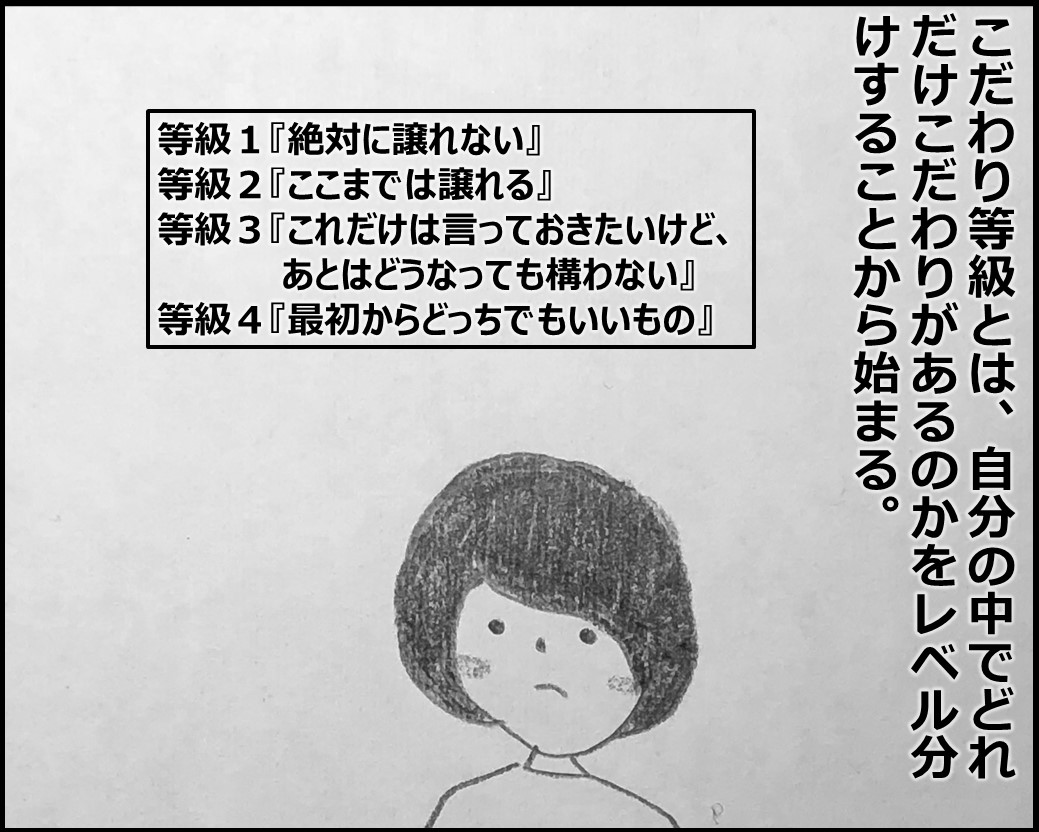 こだわり等級とは、自分の中でどれ
だけこだわりがあるのかをレベル分
けすることから始まる。
等級１『絶対に譲れない』
等級２『ここまでは譲れる』
等級３『これだけは言っておきたいけど、
あとはどうなっても構わない』
等級４『最初からどっちでもいいもの』